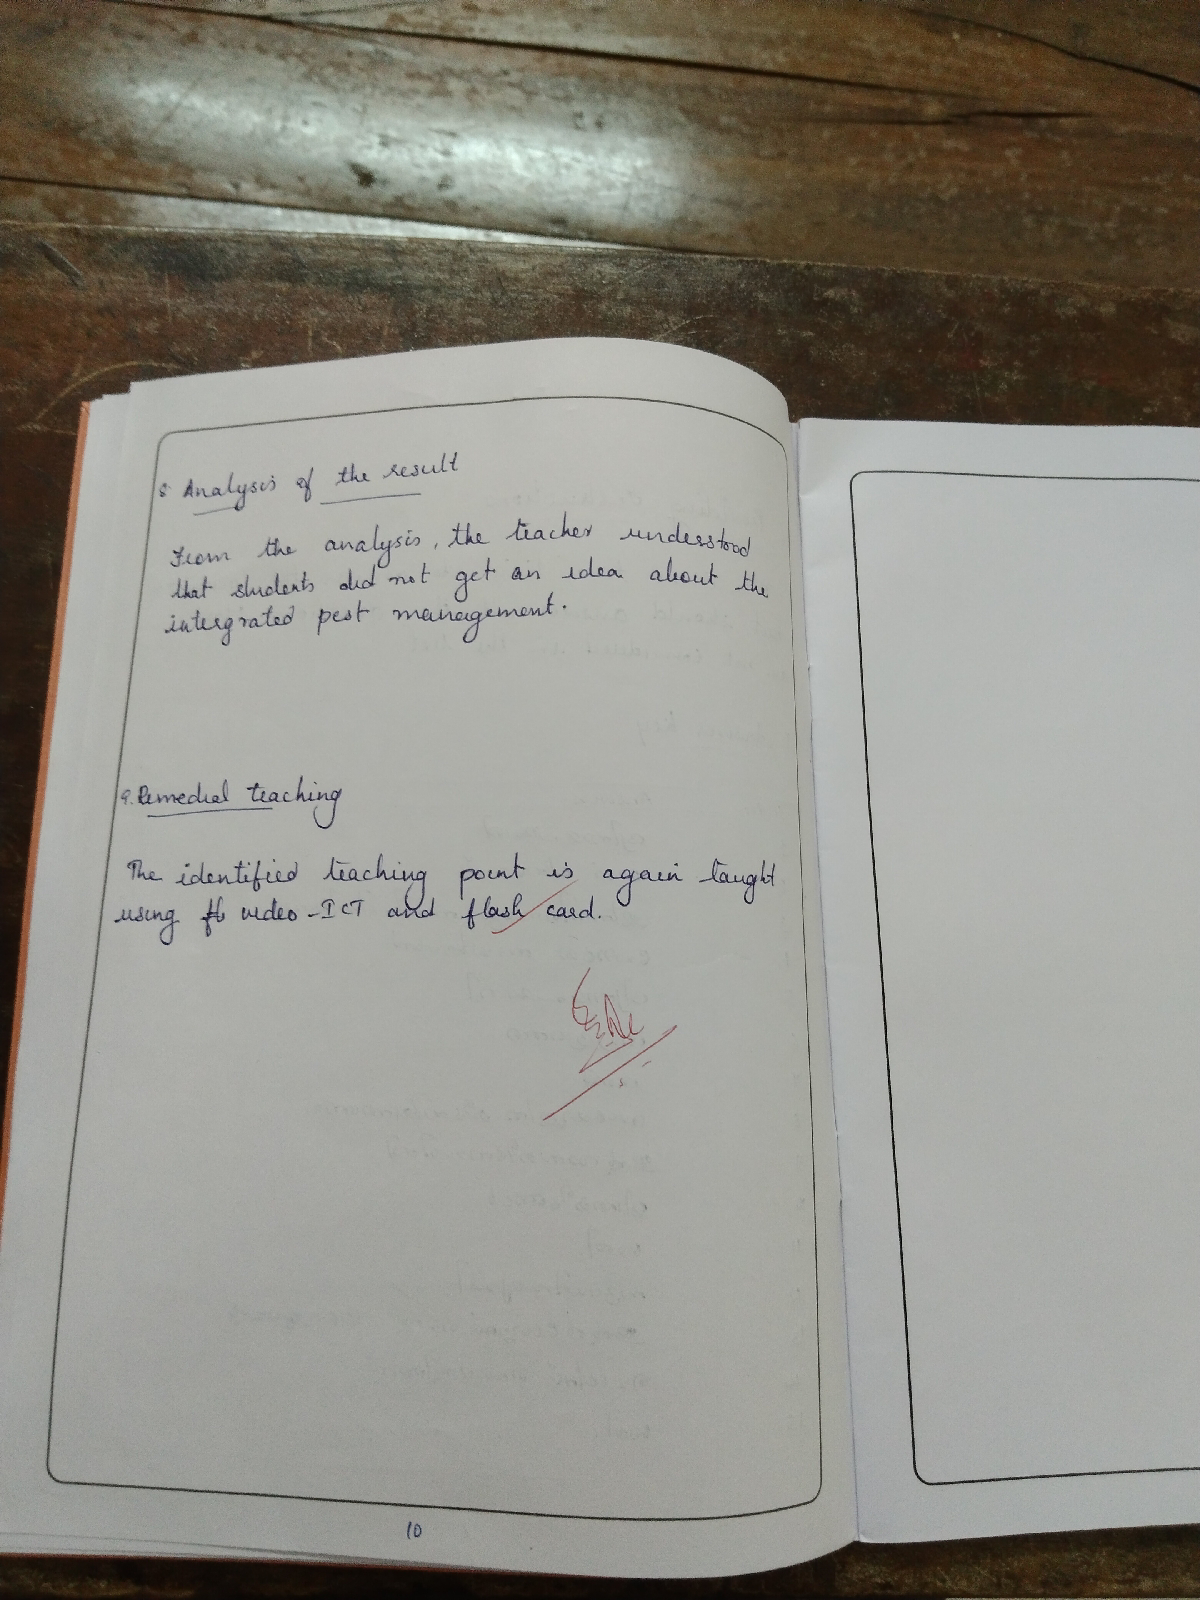 8. Analysis of the result
From the analysis, the teacher understood
that students did not get an idea about the
intergrated pest management.
9. Remedial teaching
The identified teaching point is again taught
using video-ICT and flash card.
10